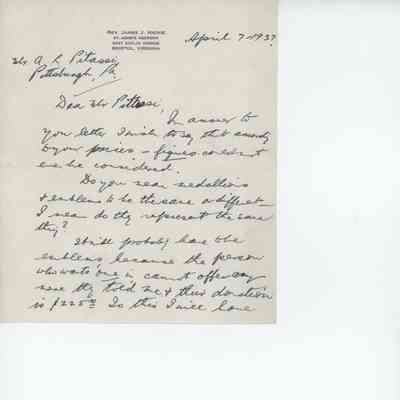 REV. JAMES J. MACKIE
ST. AGNES RECTORY
EAST EUCLID AVENUE
BRISTOL, VIRGINIA
April 7-1937
Mr A. L Pitassi
Pittsburgh, Pa.
Dear Mr Pitassi,
In answer to
your letter I wish to say that according
to your prices - figures could not
even be considered.
Do you mean medallions
& emblems to be the same or different
I mean do they represent the same
thing?
It will probably have to be
emblems because the person
who wants one in cannot offer any
more they told me & their donation
is $225.00 So this I will have